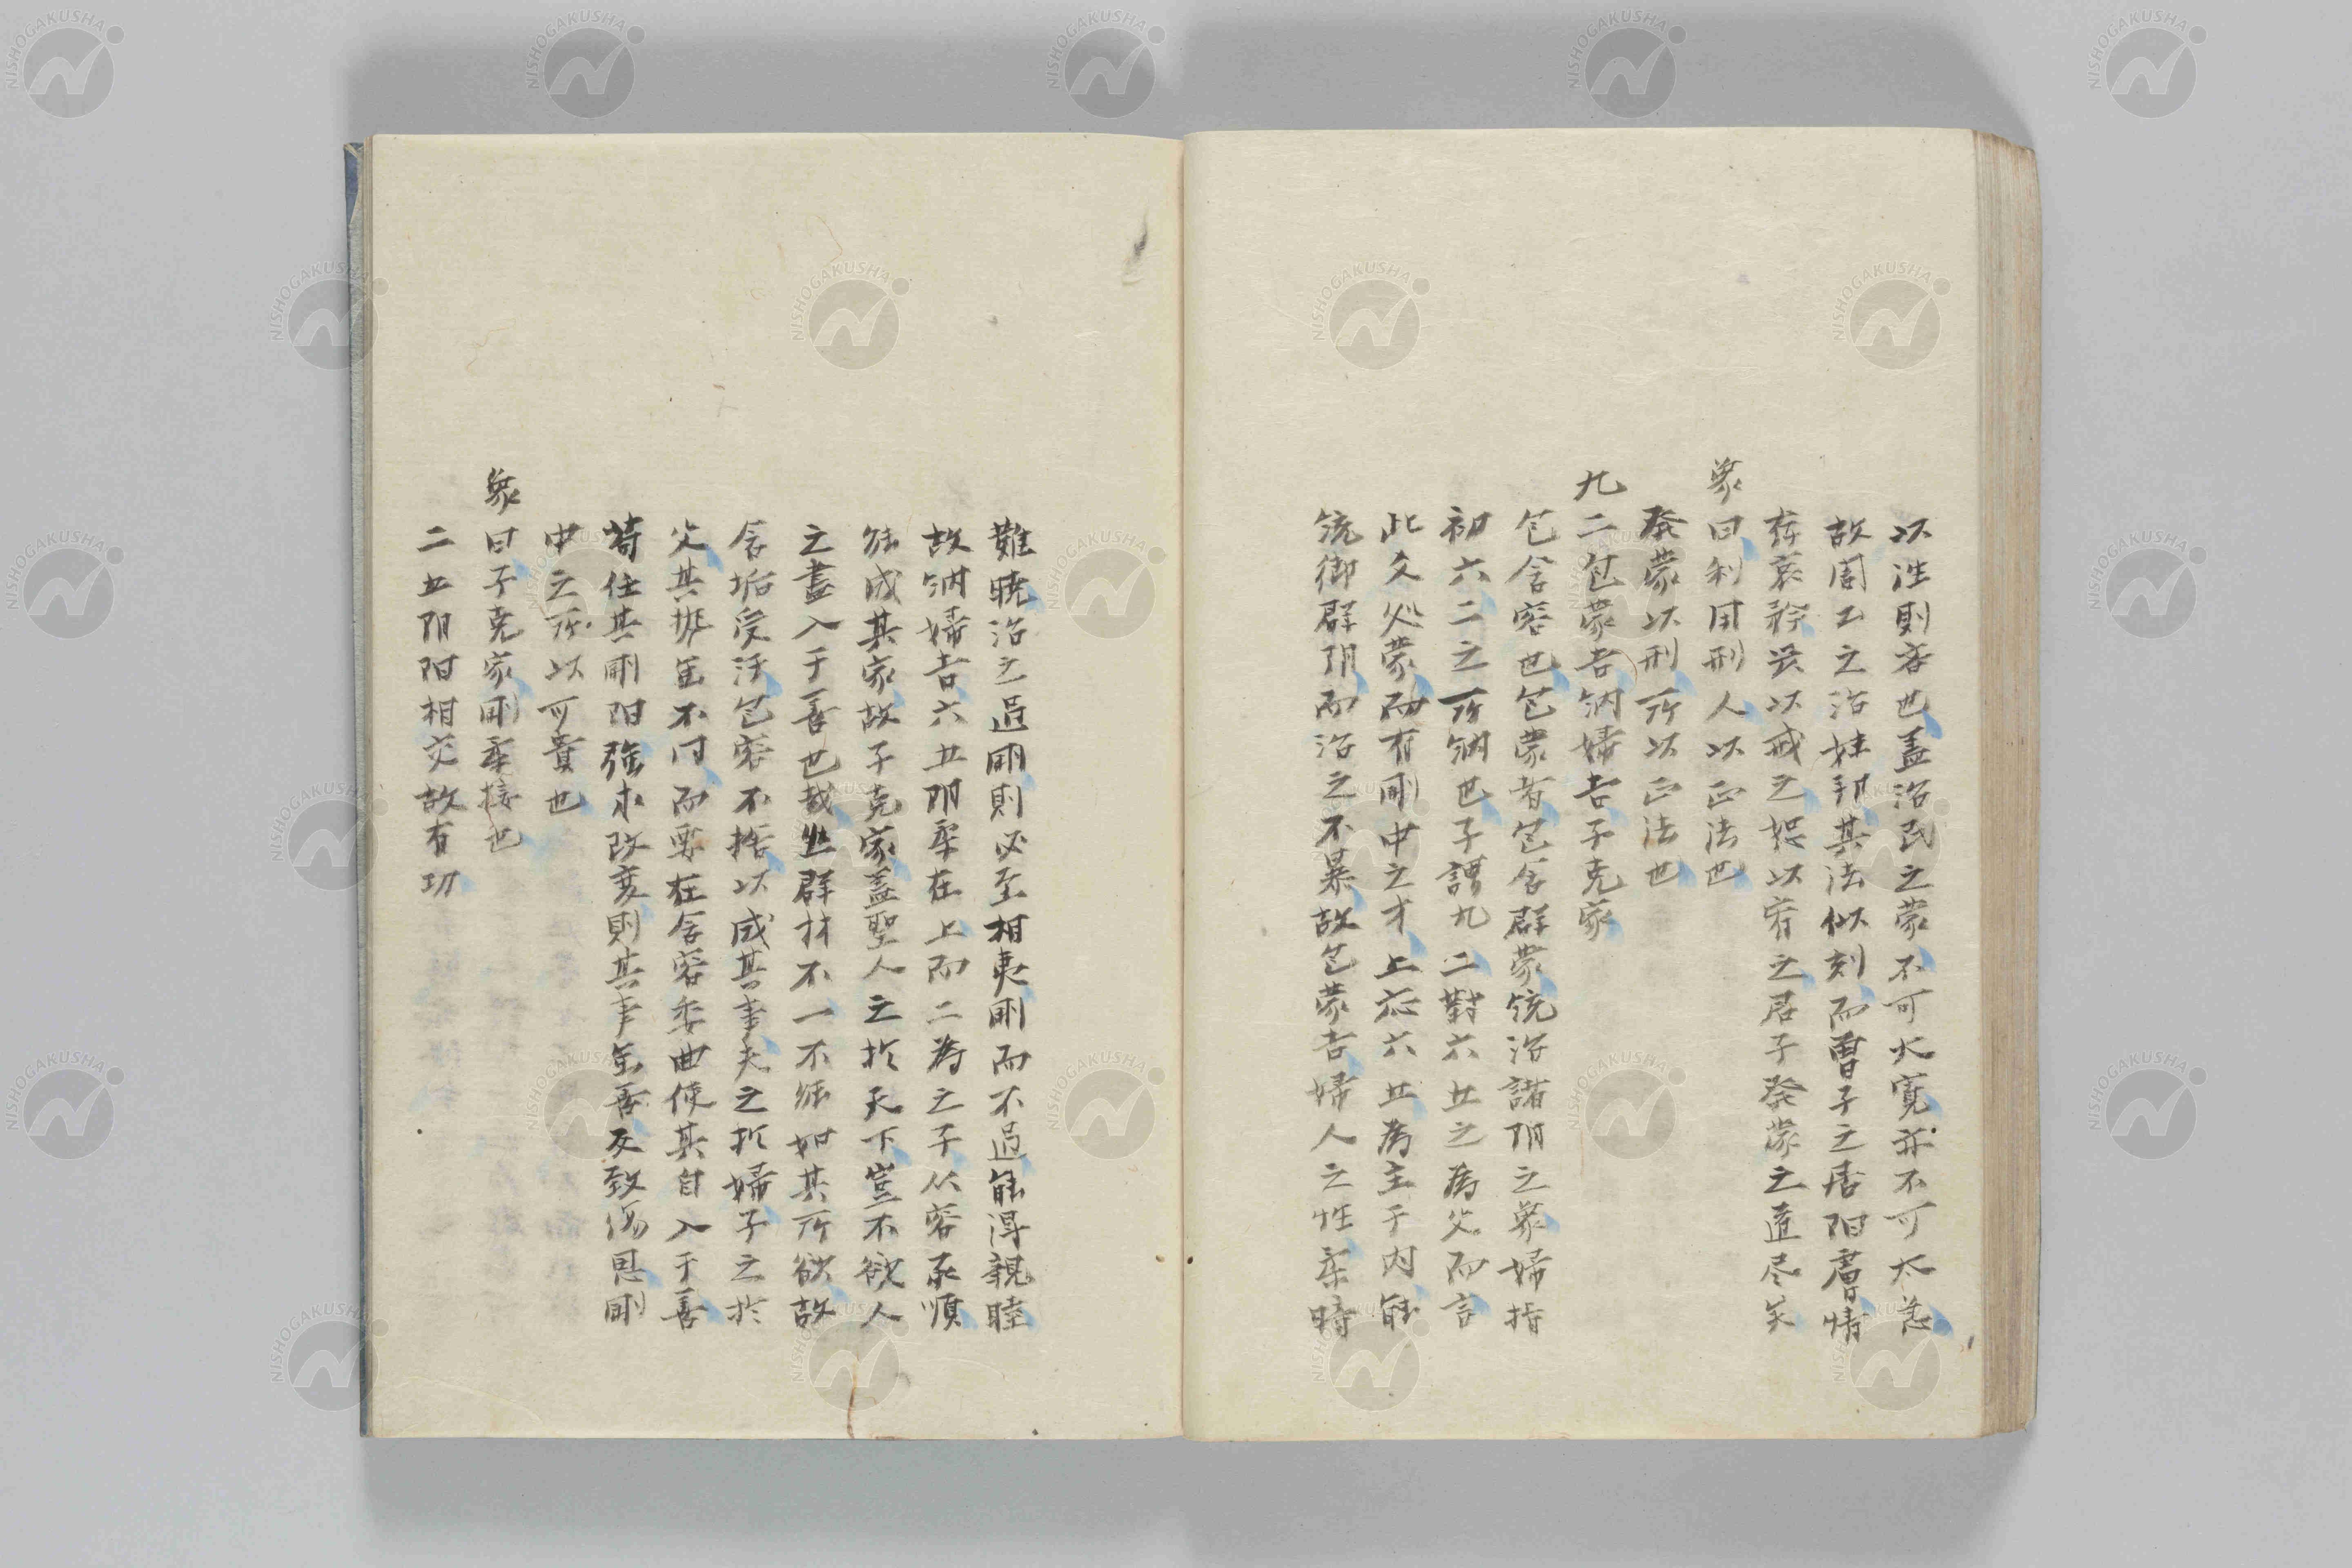 以泄則吝也蓋治民之蒙不可大寛亦不可太急
故周公之治妹邦其法似刻而曽子之告陽膚曽情
存哀矜以戒之
象曰利用刑人以正法也
発蒙以刑所以正法也
九二包蒙吉納婦吉子克家
包含容也包蒙者包含群蒙統治諸阴之蒙婦指
初六二之所納也子謂九二對六五之為父而言
此爻処蒙而有剛中之才上応六五為主于内能
統御群阴而治之不暴故包蒙吉婦人之性柔暗
難曉治之過剛則必至相夷剛而不過能得親睦
故納婦吉六五阴柔在上而二為之子从容承順
能成其家故子克家蓋聖人之於天下豈不欲人
之盡入于善也哉然群材不一不能如其所欲故
含垢受汚包容不捨以成其事夫之於婦子之於
父其撰雖不同而要在含容委曲使其自入于善
苟任其剛阳強求改変則其事雖善反致傷恩剛
中之所以可貴也
象曰子克家剛柔接也
二五阴阳相交故有功
NISHOGAKUSHA